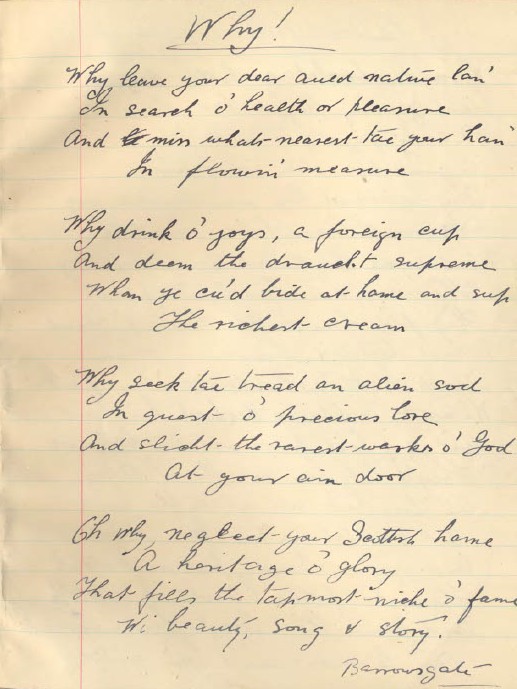 Why!
Why leave your dear aued native lan'
In search o' health or pleasure
And miss whats nearest tae your han'
In flowin' measure
Why drink o' joys, a foreign cup
And deem the draucht supreme
Whan ye cu'd bide at home and sup
The richest cream
Why seek tae tread an alien sod
In quest o' precious lore
And slicht the rarest warks o' God
At your ain door
Oh why, neglect your Scottish hame
A heritage o' glory
That fills the tapmost niche o' fame
Wi' beauty, song & story.
Barrowsgate